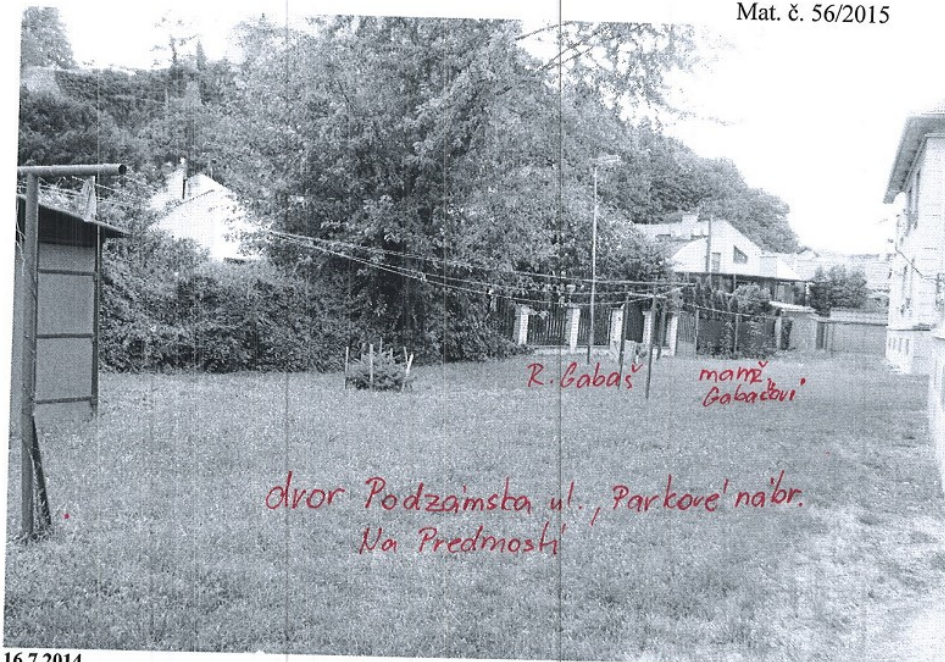 Mat. č. 56/2015
R. Gabaš
manž.
Gabašovi
dvor Podzámska ul., Parkové nábr.
Na Predmostí
16.7.2014